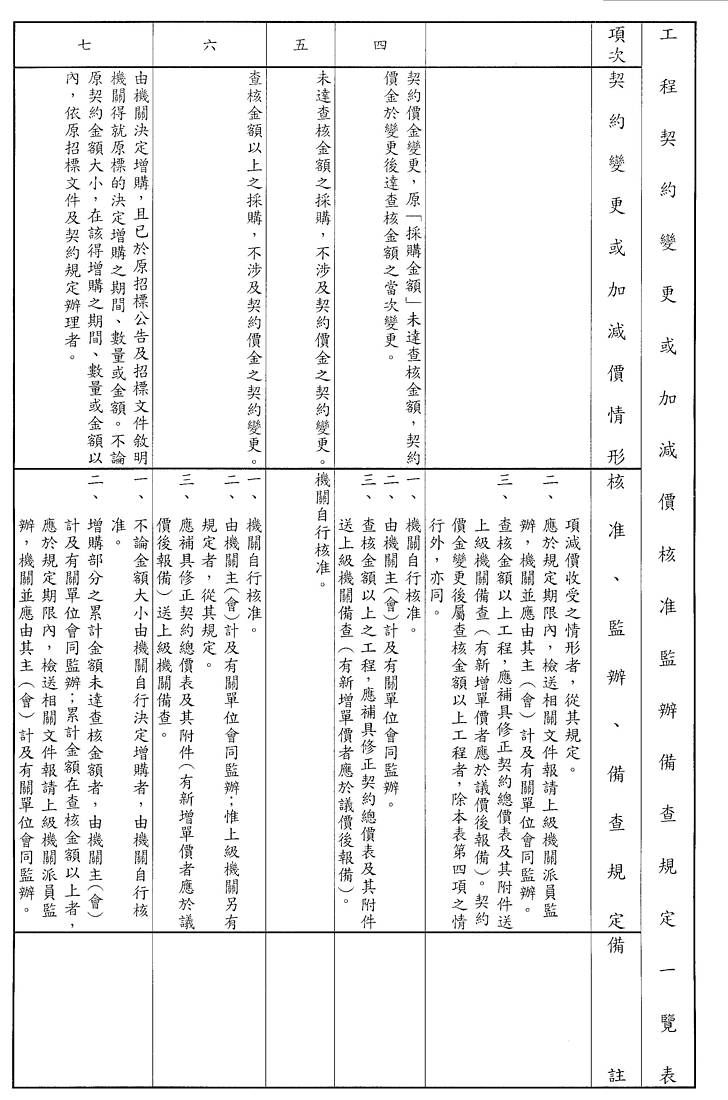 工程契約變更或加減價核准監辦備查規定一覽表
項次
契約變更或加減價情形
核准、監辦、備查規定
備註
項減價收受之情形者，從其規定。
二、應於規定期限內，檢送相關文件報請上級機關派員監
辦，機關並應由其主（會）計及有關單位會同監辦。
三、查核金額以上工程，應補具修正契約總價表及其附件送
上級機關備查（有新增單價者應於議價後報備）。契約
價金變更後屬查核金額以上工程者，除本表第四項之情
行外，亦同。
四
契約價金變更，原「採購金額」未達查核金額，契約
價金於變更後達查核金額之當次變更。
一、機關自行核准。
二、由機關主（會）計及有關單位會同監辦。
三、查核金額以上之工程，應補具修正契約總價表及其附件
送上級機關備查（有新增單價者應於議價後報備）。
五
未達查核金額之採購，不涉及契約價金之契約變更。
機關自行核准。
六
查核金額以上之採購，不涉及契約價金之契約變更。
一、機關自行核准。
二、由機關主（會）計及有關單位會同監辦；惟上級機關另有
規定者，從其規定。
三、應補具修正契約總價表及其附件（有新增單價者應於議
價後報備）送上級機關備查。
七
由機關決定增購，且已於原招標公告及招標文件敘明
機關得就原標的決定增購之期間、數量或金額。不論
原契約金額大小，在該得增購之期間、數量或金額以
內，依原招標文件及契約規定辦理者。
一、不論金額大小由機關自行決定增購者，由機關自行核
准。
二、增購部分之累計金額未達查核金額者，由機關主（會）
計及有關單位會同監辦；累計金額在查核金額以上者，
應於規定期限內，檢送相關文件報請上級機關派員監
辦，機關並應由其主（會）計及有關單位會同監辦。